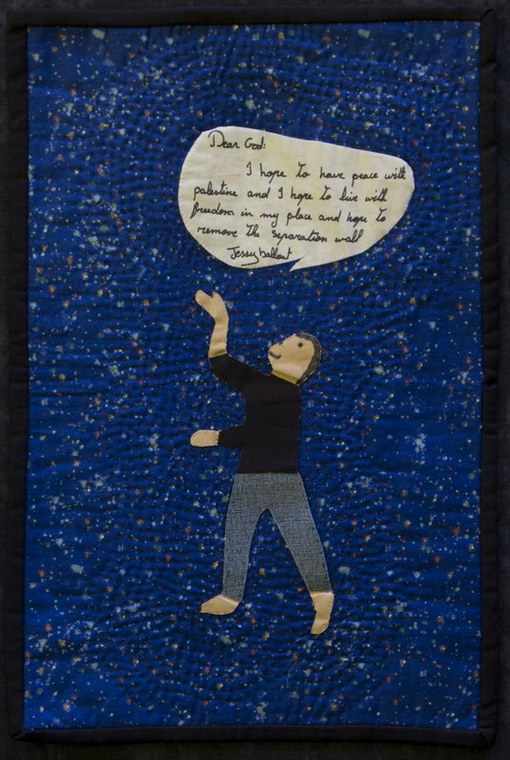 Dear God:
I hope to have peace with
palestine and I hope to live with
freedom in my place and hope to
remove the separation wall
Jessy ballout